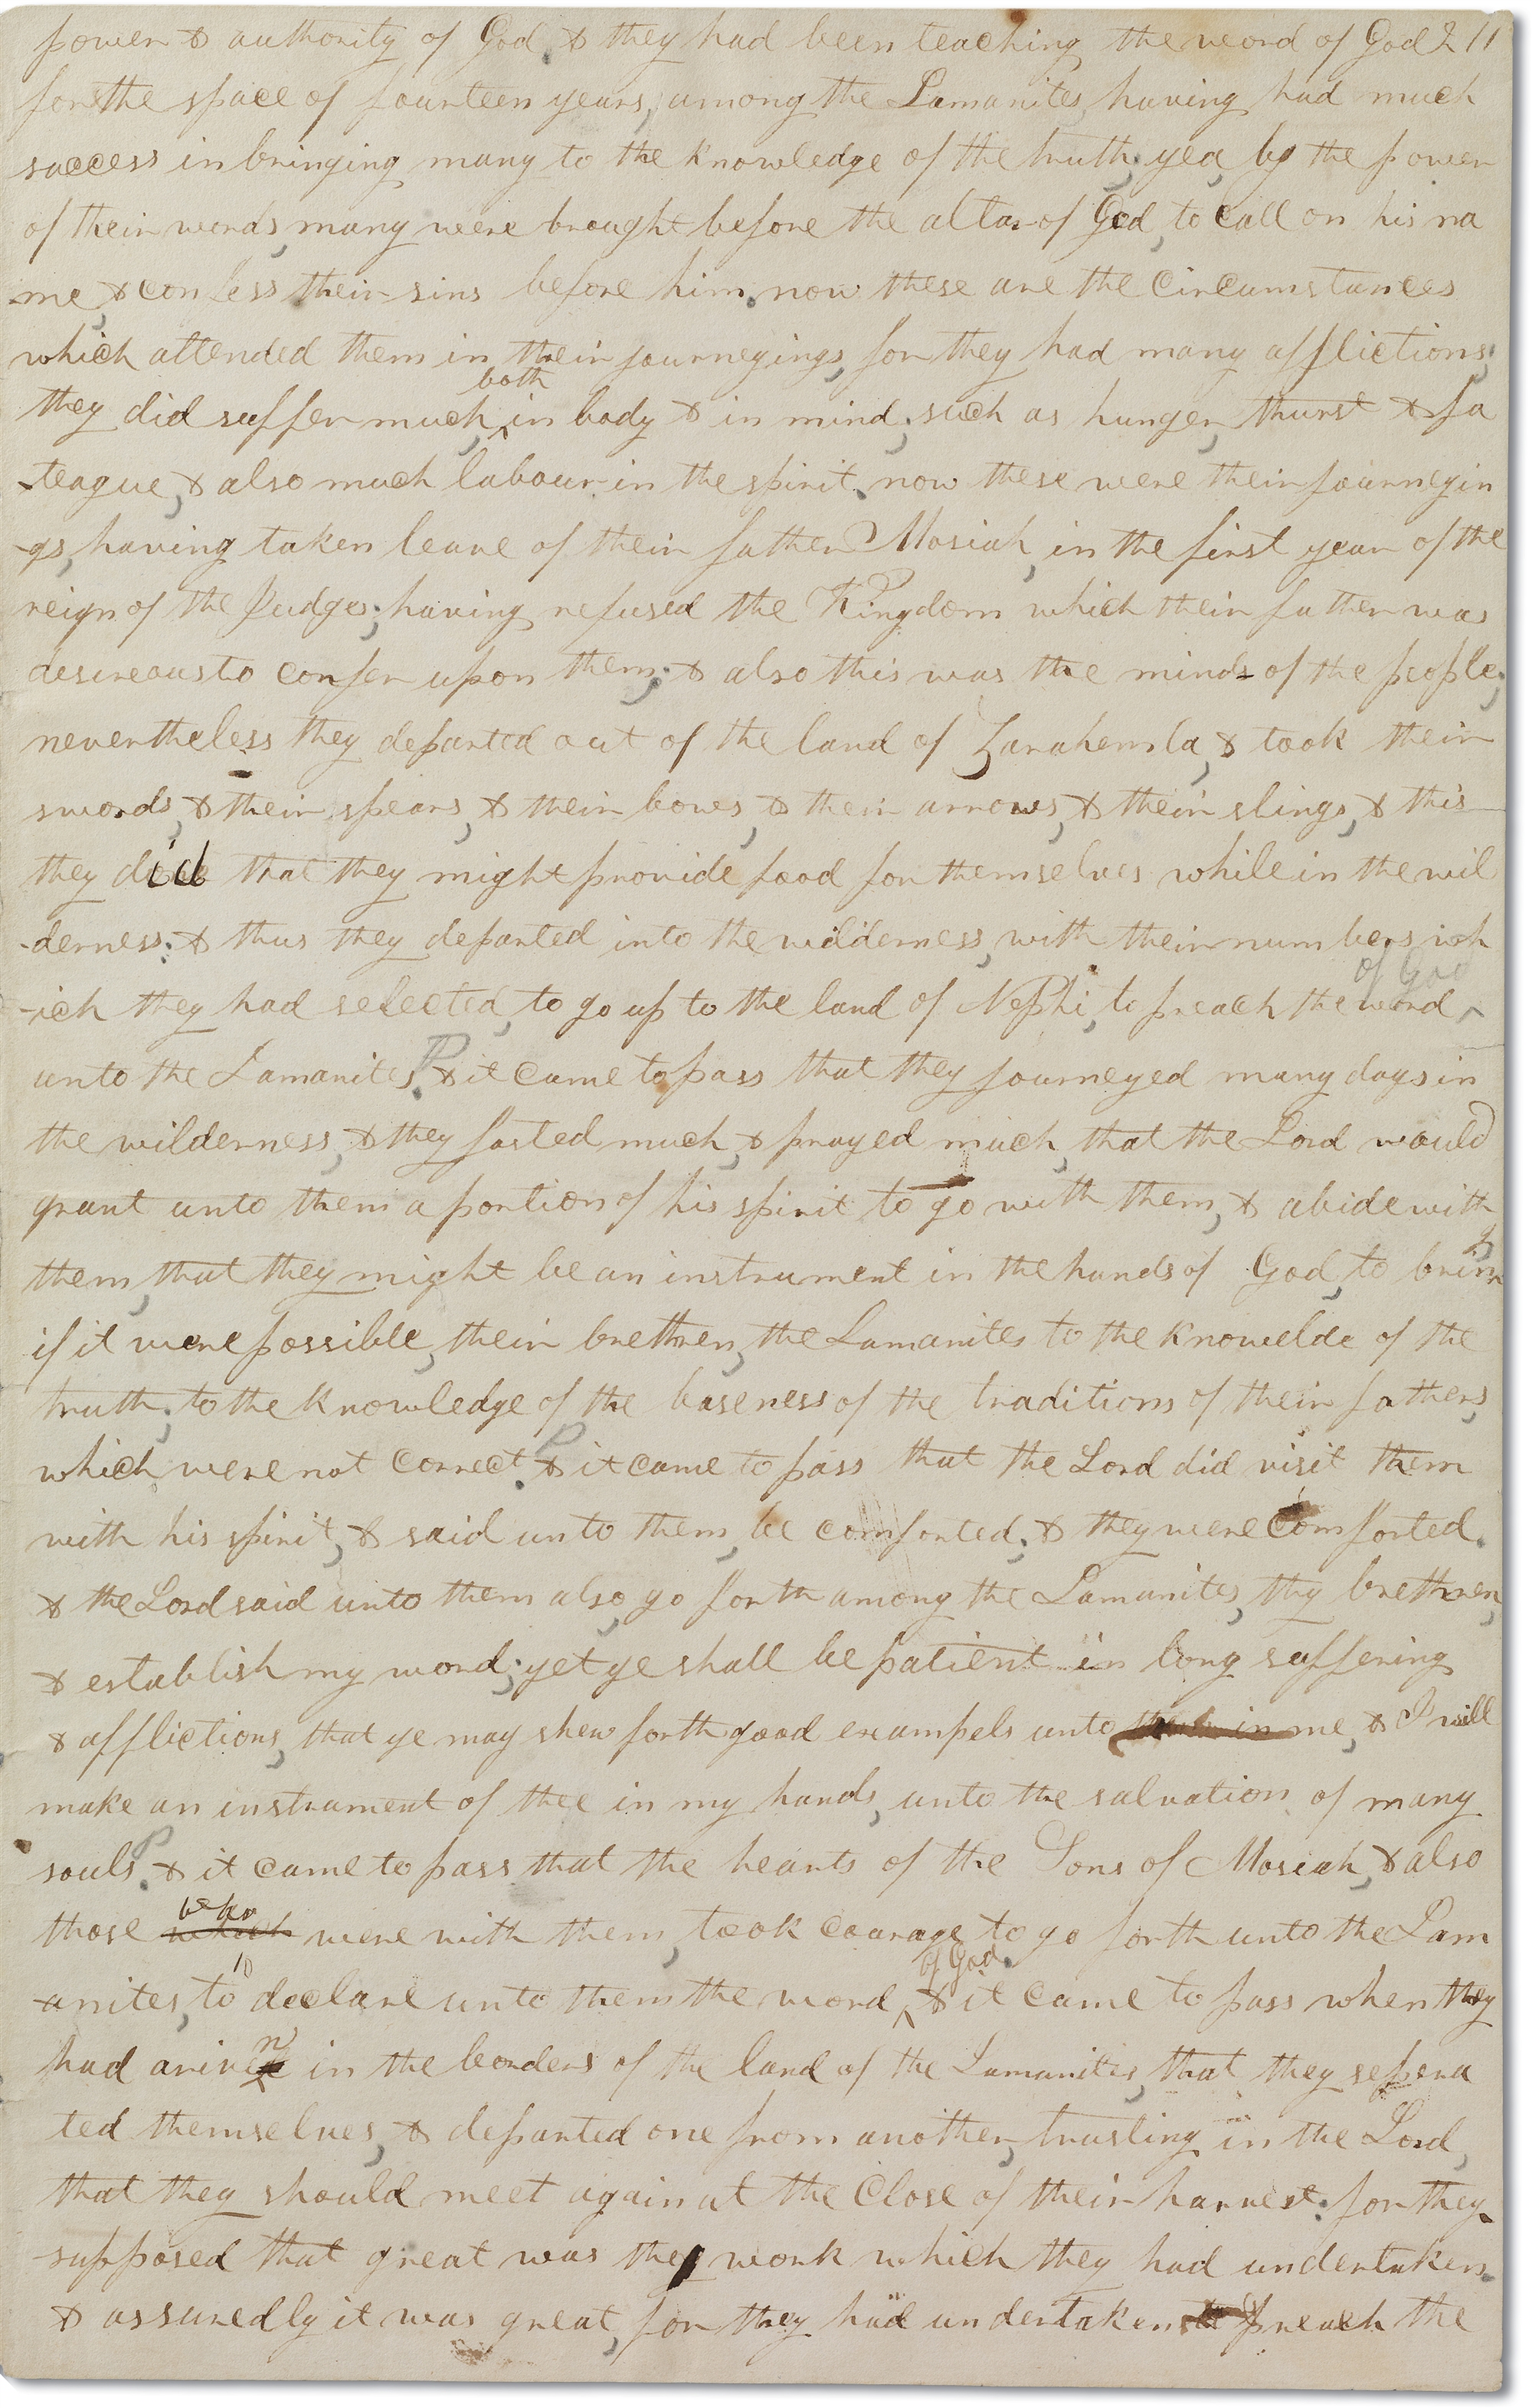 power & authority of God. & they had been teaching the word of God 211
for the space of fourteen years, among the Lamanites, having had much
success in bringing many to the knowledge of the truth; yea, by the power
of their words, many were brought before the altar of God, to call on his na
-me, & confess their sins before him. now these are the circumstances
which attended them in their journeyings, for they had many afflictions;
both
they did suffer much, ^ in body & in mind; such as hunger, thurst & fa
-teague, & also much labour in the spirit. now these were their journeyin
-gs, having taken leave of their father Mosiah, in the first year of the
reign of the Judges; having refused the Kingdom which their father was
desireous to confer upon them; & also this was the minds of the people;
nevertheless they departed out of the land of Zarahemla, & took their
swords, & their spears, & their bows, & their arrows, & their slings, & this
they did that they might provide food for themselves while in the wil
-derness: & thus they departed into the wilderness, with their numbers wh
of God
-ich they had selected, to go up to the land of Nephi, to preach the word ^
unto the Lamanites. P & it came to pass that they journeyed many days in
the wilderness, & they fasted much, & prayed much, that the Lord would
grant unto them a portion of his spirit to go with them, & abide with
them, that they might be an instrument in the hands of God, to bring
if it were possible, their brethren, the Lamanites to the knowelde of the
truth; to the knowledge of the baseness of the traditions of their fathers,
which were not correct. P & it came to pass that the Lord did visit them
with his spirit, & said unto them, be comforted; & they were comforted.
& the Lord said unto them also, go forth among the Lamanites, thy brethren,
& establish my word; yet ye shall be patient in long suffering
& afflictions, that ye may shew forth good exampels unto them in me, & I will
make an instrument of thee in my hands, unto the salvation of many
souls. P & it came to pass that the hearts of the Sons of Mosiah, & also
who
those which were with them, took courage to go forth unto the Lam
of God.
-anites, to declare unto them the word ^ & it came to pass when they
had ariven in the borders of the land of the Lamanites, that they sepera
ted themselves, & departed one from another, trusting in the Lord,
that they should meet again at the close of their harvest: for they
supposed that great was the work which they had undertaken.
& assuredly it was great, for they had undertaken to preach the